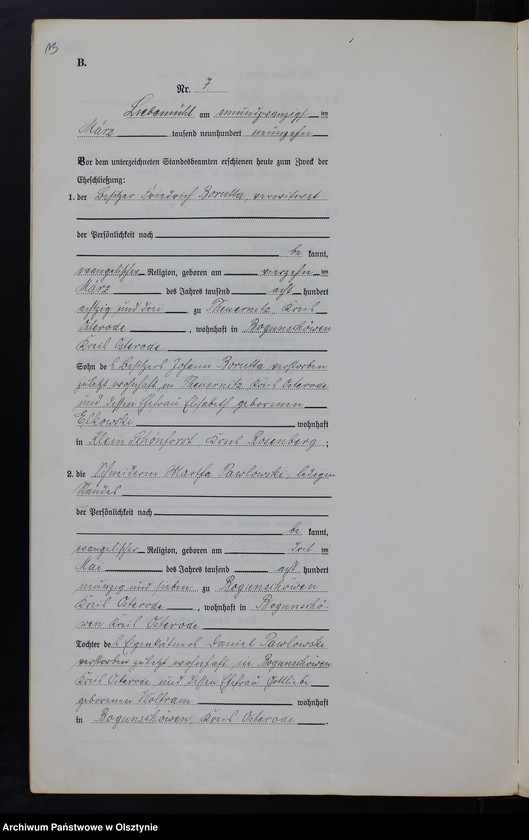 B.
Nr. 7
Liebemühl am neunundzwanzigsten
März tausend neunhundert neunzehn
Vor dem unterzeichneten Standesbeamten erschienen heute zum Zweck der
Eheschließung:
1. der Besitzer Friedrich Borutta, verwitwet
der Persönlichkeit nach
be kannt,
evangelischer Religion, geboren am vierzehn ten
März des Jahres tausend acht hundert
achtzig und drei zu Theuernitz, Kreis
Osterode, wohnhaft in Bogunschöwen
Kreis Osterode
Sohn des Besitzers Johann Borutta verstorben
zuletzt wohnhaft in Theuernitz Kreis Osterode
und dessen Ehefrau Elisabeth geborenen
Elkowski wohnhaft
in Klein Schönforst, Kreis Rosenberg ;
2. die Schneiderin Martha Pawlowski, ledigen
Standes
der Persönlichkeit nach
be kannt,
evangelischer Religion, geboren am drit ten
Mai des Jahres tausend acht hundert
neunzig und sieben zu Bogunschöwen
Kreis Osterode, wohnhaft in Bogunschö-
wen Kreis Osterode
Tochter des Eigenkätners Daniel Pawlowski
verstorben zuletzt wohnhaft in Bogunschöwen
Kreis Osterode und dessen Ehefrau Gottliebe
geborenen Wolfram wohnhaft
in Bogunschöwen, Kreis Osterode.
Archiwum Państwowe w Olsztynie